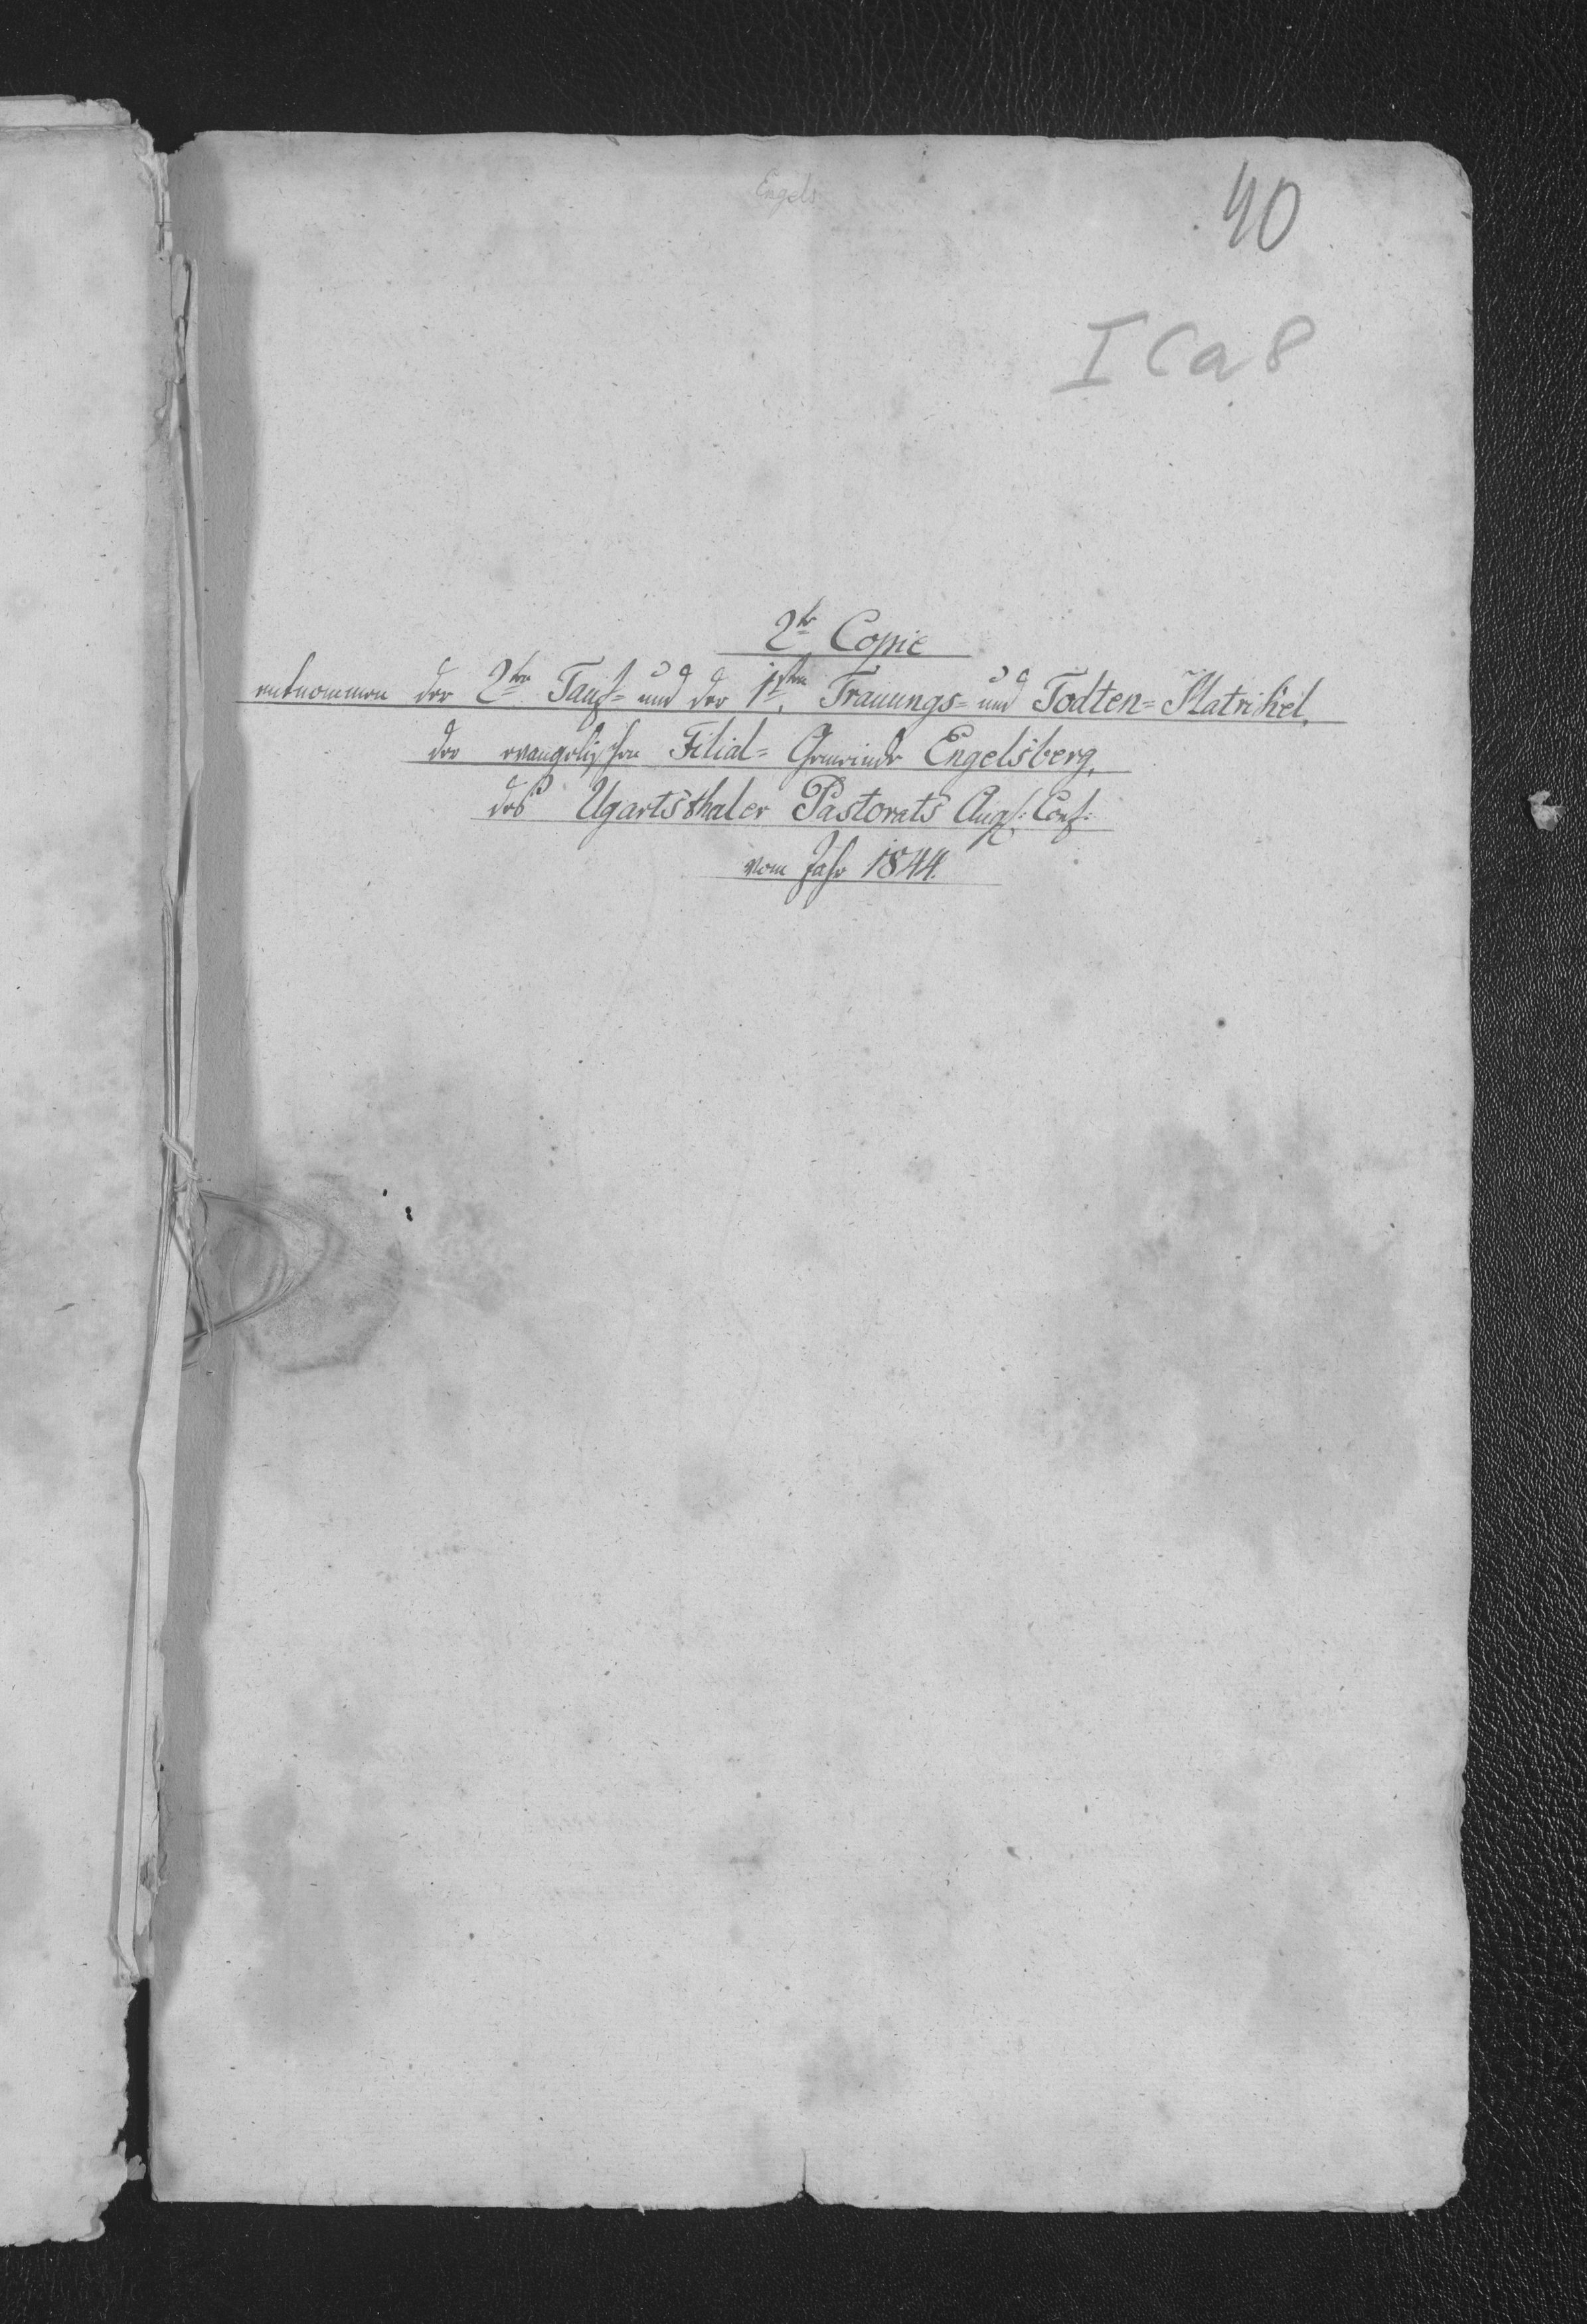 Engels
40
I C a 8
2te Copie
entnommen der 2ten Tauf= und der 1sten Trauungs= und Todten=Matrikel,
der evangelischen Filial=Gemeinde Engelsberg,
des Ugartsthaler Pastorats Augs: Conf:
vom Jahr 1844.